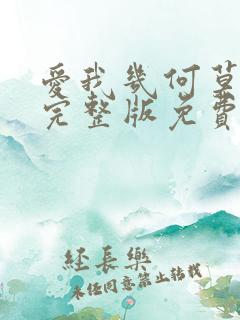 愛我幾何草
完整版免費
經長樂
未经同意禁止转载